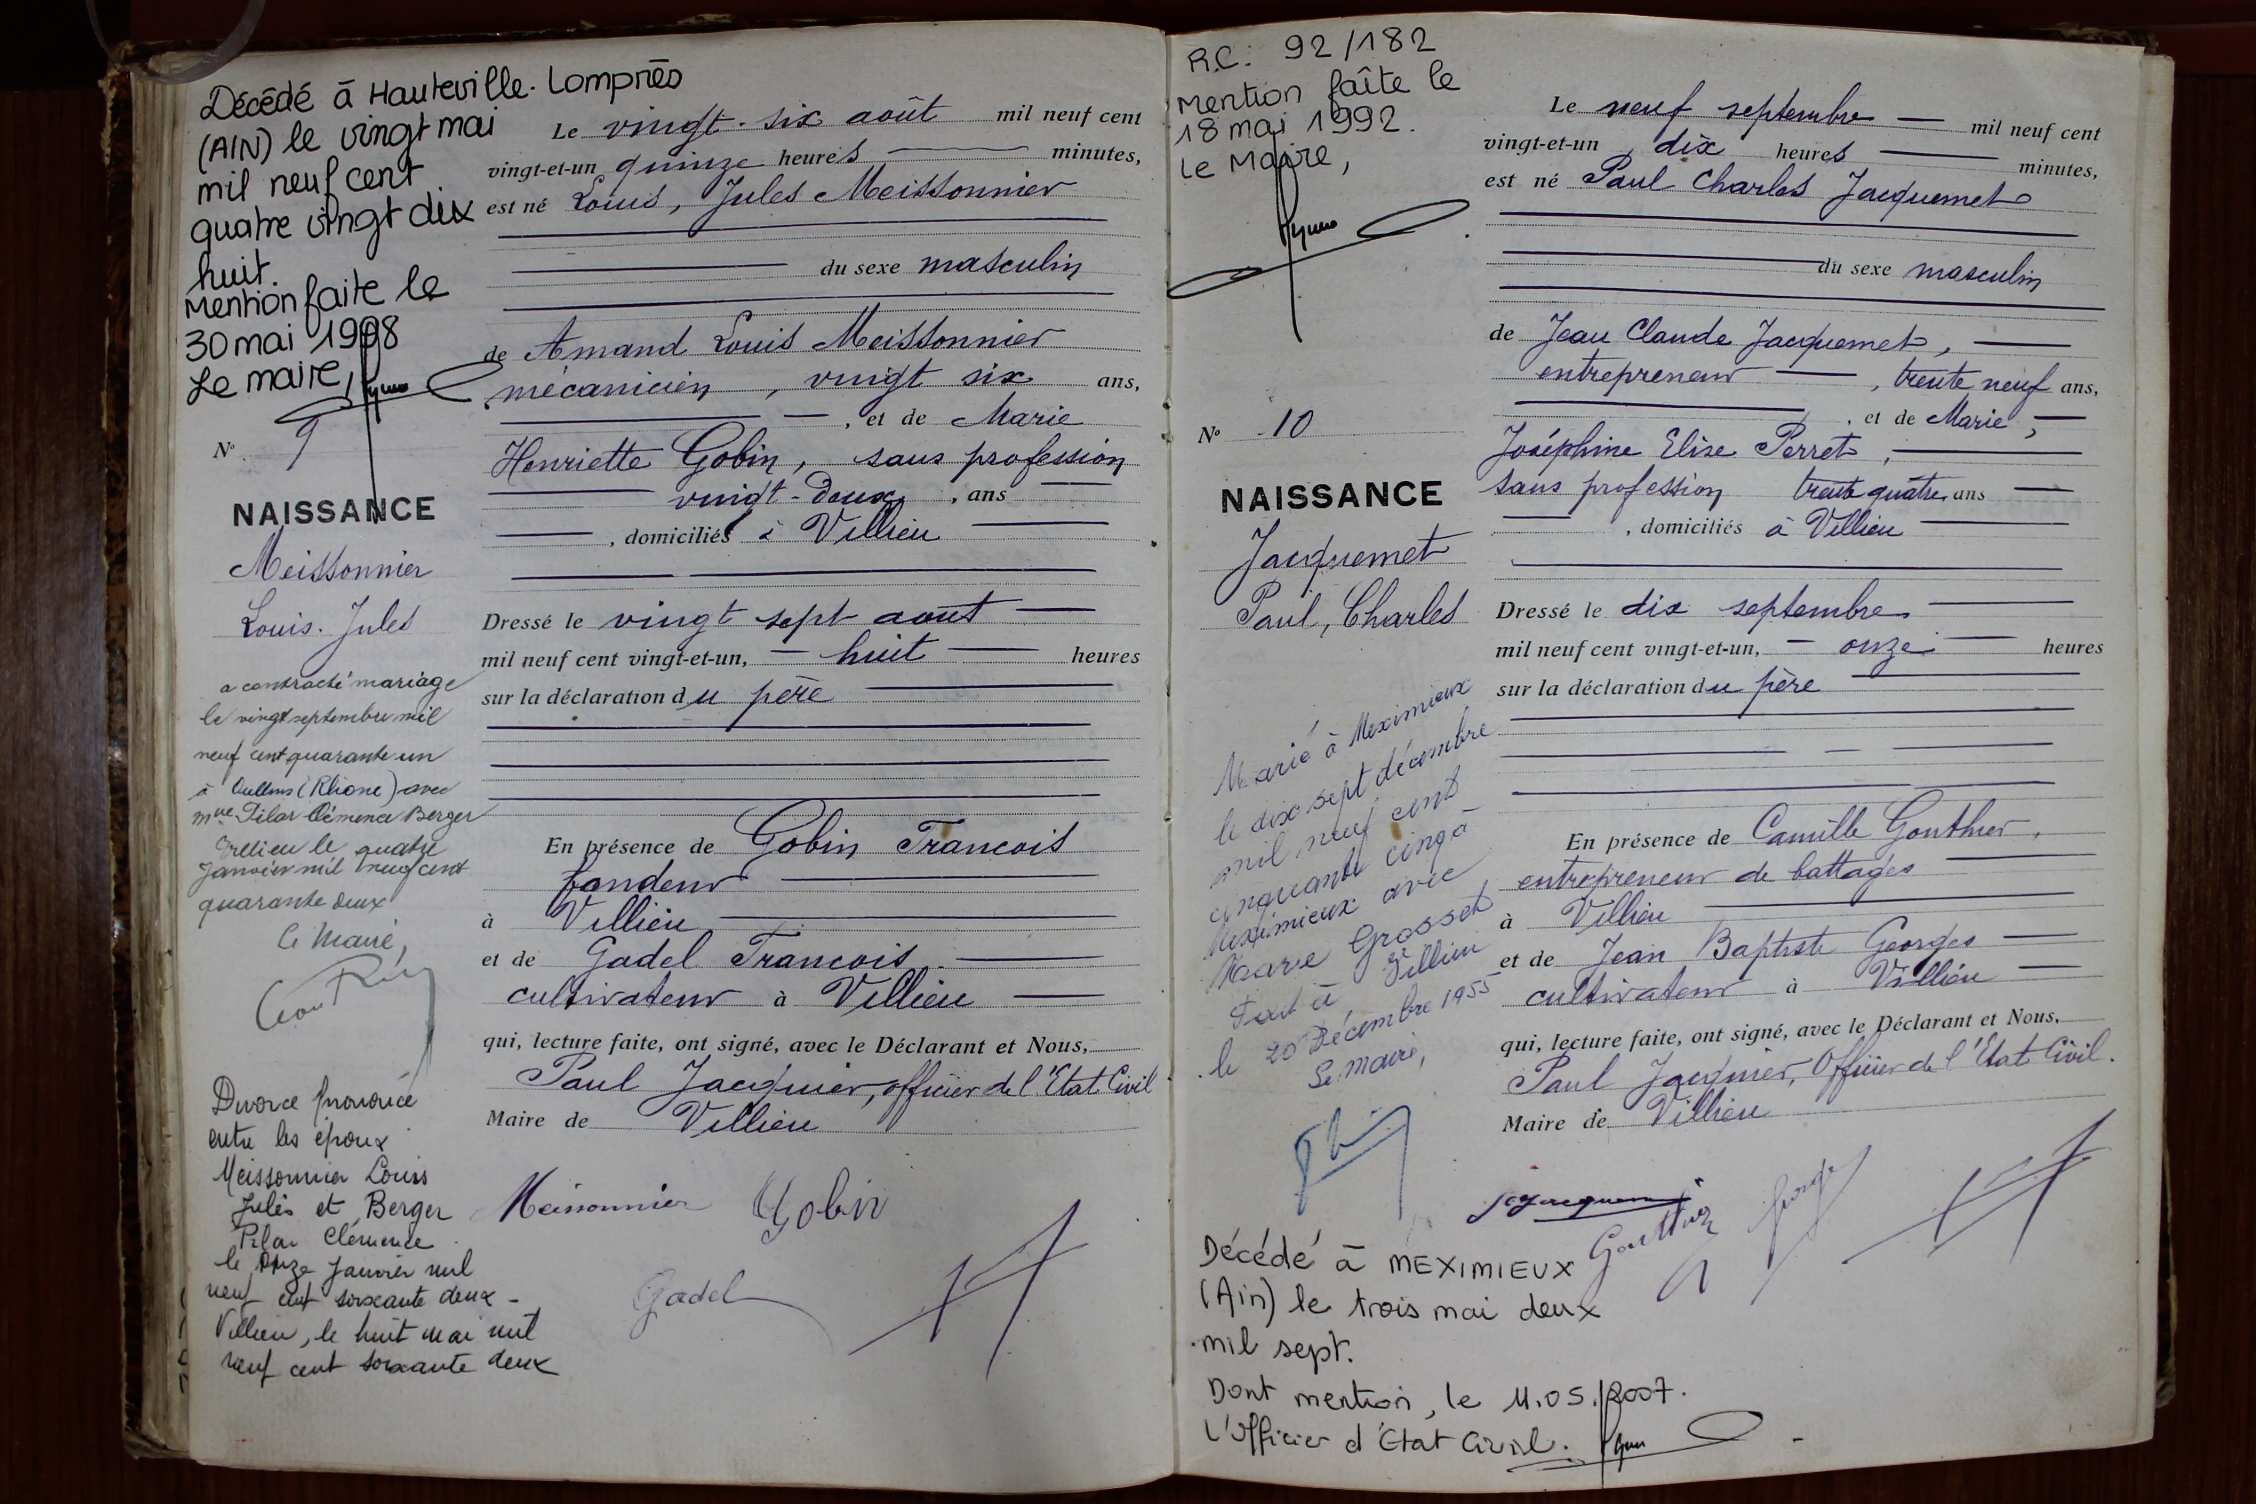 Décédé à Hauteville-Lompnès
(AIN) le vingt mai
mil neuf cent
quatre vingt dix
huit.
Mention faite le
30 mai 1998
Le maire,
N° 9
NAISSANCE
Meissonnier
Louis. Jules
a contracté mariage
le vingt septembre mil
neuf cent quarante un
à Oullins (Rhône) avec
Mlle Pilar Clémence Berger
le quatre
Janvier mil neuf cent
quarante deux
Le Maire,
Divorce prononcé
entre les époux
Meissonnier Louis
Jules et Berger
Pilar Clémence
le onze Janvier mil
neuf cent soixante deux -
Villieu, le huit mai mil
neuf cent soixante deux
Le vingt-six août mil neuf cent
vingt-et-un quinze heures minutes,
est né Louis, Jules Meissonnier
du sexe masculin
de Amand Louis Meissonnier
mécanicien, vingt six ans,
, et de Marie
Henriette Gobin, sans profession
vingt-deux, ans
, domiciliés à Villieu
Dressé le vingt sept août
mil neuf cent vingt-et-un, huit heures
sur la déclaration du père
En présence de Gobin Francois
fondeur
à Villieu
et de Gadel Francois
cultivateur à Villieu
qui, lecture faite, ont signé, avec le Déclarant et Nous,
Paul Jacquier, officier de l'Etat Civil
Maire de Villieu
Meissonnier Gobin
Gadel
R.C: 92/182
Mention faîte le
18 mai 1992.
Le Maire,
N° 10
NAISSANCE
Jacquemet
Paul, Charles
Marié à Meximieux
le dix sept décembre
mil neuf cent
cinquante cinq à
Meximieux avec
Marie Grosset
Fait à Villieu
le 20 Décembre 1955
Le Maire,
Le neuf septembre mil neuf cent
vingt-et-un, dix heures minutes,
est né Paul Charles Jacquemet
du sexe masculin
de Jean Claude Jacquemet,
entrepreneur, trente neuf ans,
, et de Marie,
Joséphine Elise Perret,
sans profession trente quatre ans
, domiciliés à Villieu
Dressé le dix septembre
mil neuf cent vingt-et-un, onze heures
sur la déclaration du père
En présence de Camille Gonthier,
entrepreneur de battages
à Villieu
et de Jean Baptiste Georges
cultivateur à Villieu
qui, lecture faite, ont signé, avec le Déclarant et Nous,
Paul Jacquier, Officier de l'Etat Civil.
Maire de Villieu
Gonthier Georges
Décédé à MEXIMIEUX
(Ain) le trois mai deux
mil sept.
Dont mention, le 11.05.2007.
L'officier d'Etat Civil.